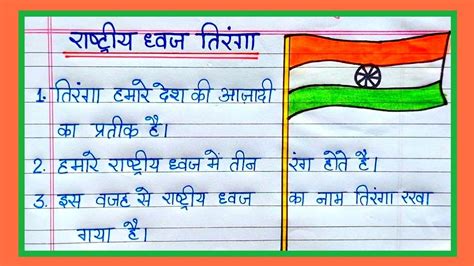 राष्ट्रीय ध्वज तिरंगा
1. तिरंगा हमारे देश की आजादी
का प्रतीक है।
2. हमारे राष्ट्रीय ध्वज में तीन रंग होते है।
3. इस वजह से राष्ट्रीय ध्वज का नाम तिरंगा रखा
गया है।